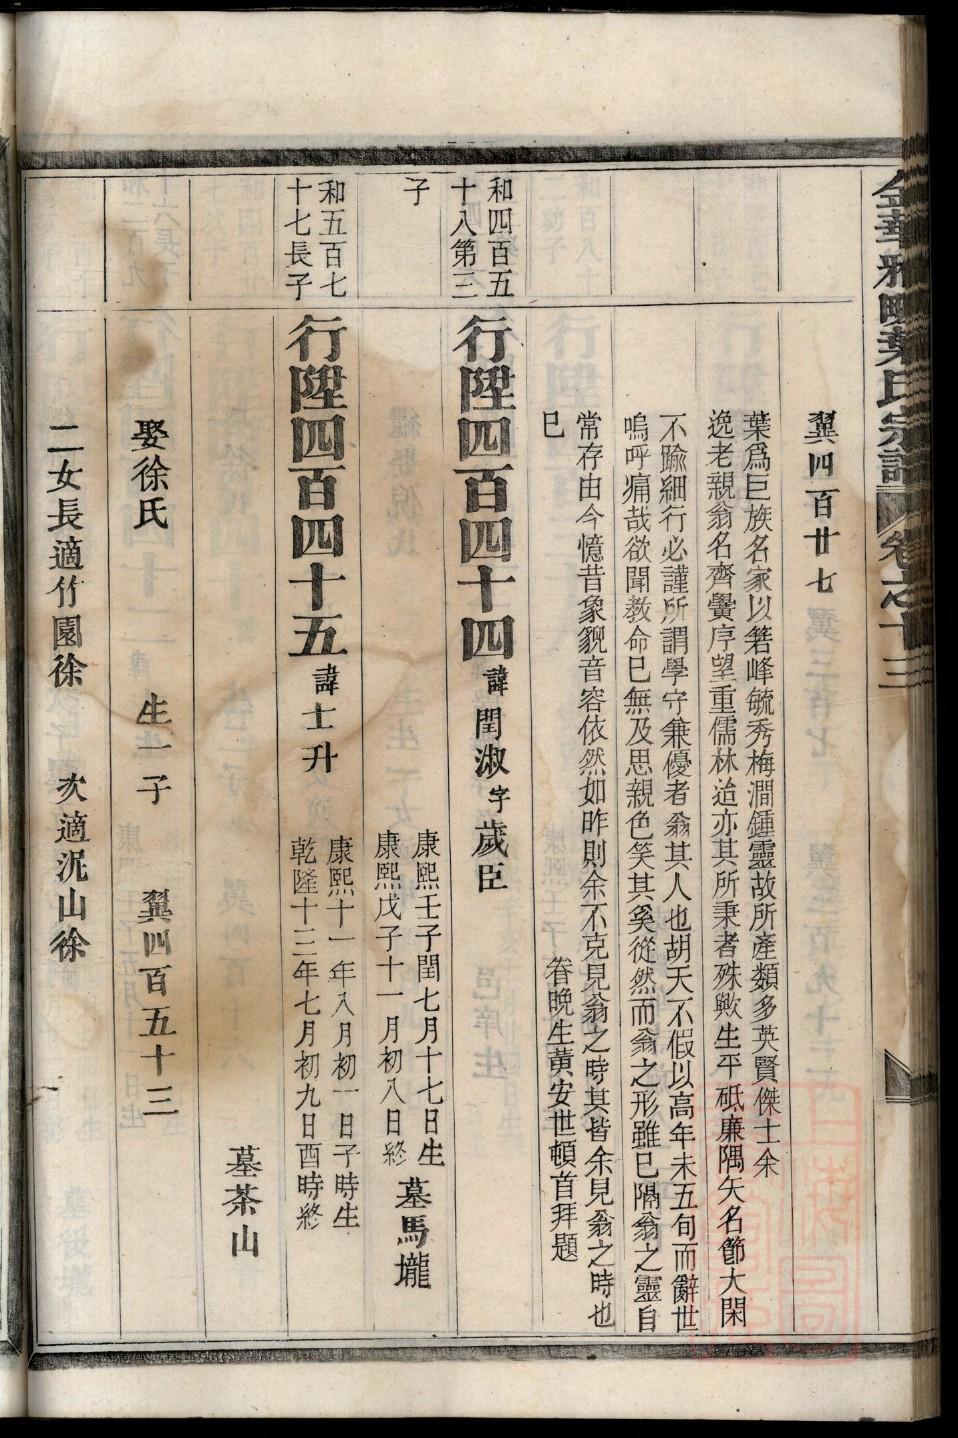 金華雅畈葉氏宗譜 卷之十三
翼四百廿七
葉爲巨族名家以箬峰毓秀梅澗鍾靈故所產類多英賢傑士余
逸老親翁名齊黌序望重儒林迨亦其所秉者殊歟生平砥廉隅矢名節大閑
不踰細行必謹所謂學守兼優者翁其人也胡天不假以高年未五旬而辭世
嗚呼痛哉欲聞教命已無及思親色笑其奚從然而翁之形雖已隔翁之靈自
常存由今憶昔象貌音容依然如昨則余不克見翁之時其皆余見翁之時也
已
眷晚生黄安世頓首拜題
和四百五
十八第三
子
行陞四百四十四 諱閏淑 字歲臣
康熙壬子閏七月十七日生
康熙戊子十一月初八日終
墓馬壠
和五百七
十七長子
行陞四百四十五 諱士升
康熙十一年八月初一日子時生
乾隆十三年七月初九日酉時終
墓茶山
娶徐氏 生一子 翼四百五十三
二女長適竹園徐 次適泥山徐